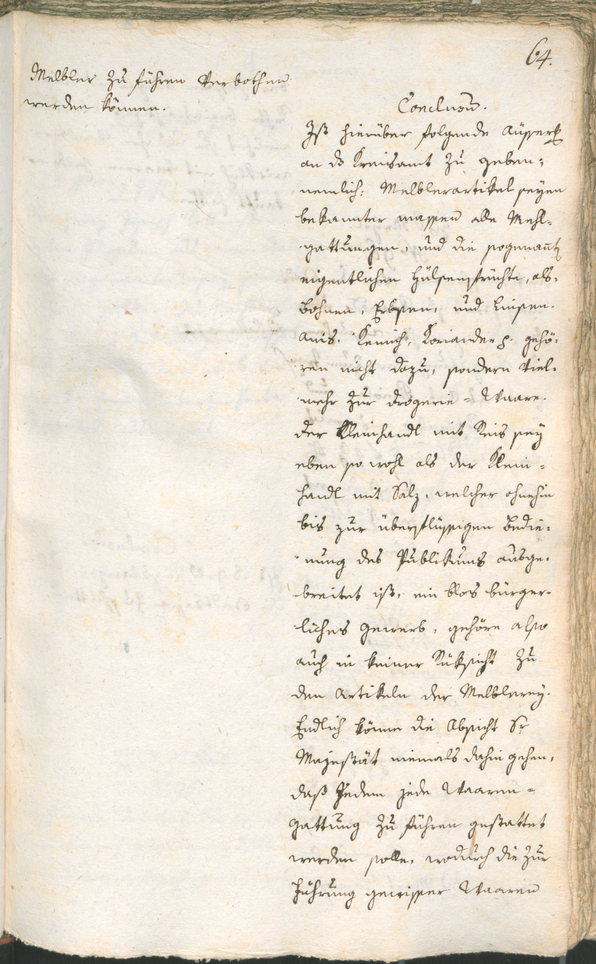 64.
Melbler zu führen verbothen
werden können.
Conclusum.
Ist hierüber folgende Äusserg
an das Kreisamt zu geben:
nemlich: Melblerartikel seyen
bekannter massen alle Mehl-
gattungen, und die sogenannte
eigentlichen Hülsenfrüchte, als:
Bohnen, Erbsen, und Linsen.
Anis, Kümich, Koriander gehö-
ren nicht dazu, sondern viel-
mehr zur Drogerie-Waare.
Der Kleinhandl mit Reis sey
eben so wohl als der Klein-
handl mit Salz, welcher ohnehin
bis zur überflüssigen Bedie-
nung des Publikums ausge-
breitet ist, ein blos bürger-
liches Gewerb, gehöre also
auch in keiner Rüksicht zu
den Artikeln der Melblerey.
Endlich könne die Absicht Sr
Majestät niemals dahin gehen,
daß Jedem jede Waaren-
gattung zu führen gestattet
werden solle, wodurch die zur
Führung gewisser Waaren